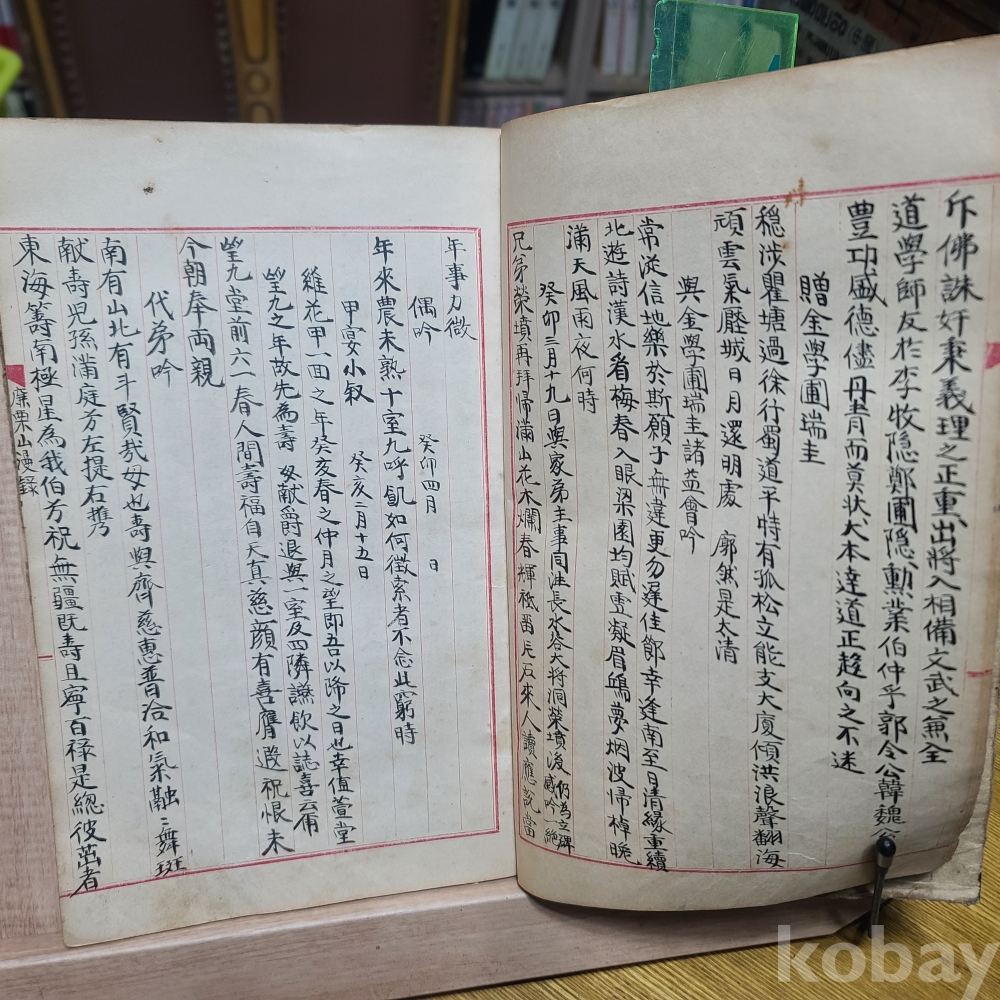 斥佛誅奸秉義理之正重出將入相備文武之兼全
道學師友於李牧隱鄭圃隱勳業伯仲乎郭令公韓魏公
豊功盛德儘丹青而莫狀大本達道正趍向之不迷
贈金學圃瑞圭
穩涉瞿塘過徐行蜀道平特有孤松立能支大厦傾洪浪聲翻海
頑雲氣壓城日月還明處 廓然是太清
與金學圃瑞圭諸益會吟
常從信地樂於斯願子無違更勿遲佳節幸逢南至日清緣重續
北遊詩漢水看梅春入眼梁園均賦雪凝眉鴟夢烟波帰棹晚
滿天風雨夜何時
癸卯三月十九日與家弟主事同往長水谷大將洞榮墳後仍為立碑感吟一絶
兄弟榮墳再拜帰滿山花木爛春輝祗畨片石來人讀應説當
年事力微
偶吟 癸卯四月 日
年來農未熟十室九呼飢如何徴索者不念此窮時
甲宴小叙 癸亥二月十五日
維花甲一面之年癸亥春之仲月之望即吾以降之日也幸值萱堂
望九之年故先為壽 奴献爵退與一室及四隣讌飲以誌喜云甫
望九堂前六一春人間壽福自天真慈顔有喜膺遐祝恨未
今朝奉両親
代弟吟
南有山北有斗賢哉母也壽與齊慈惠普洽和氣融〻舞斑
献壽児孫滿庭方左提右携乃
東海籌南極星為我伯方祝無疆既壽且寧百禄是總彼茁者
麻栗山漫録
kobay